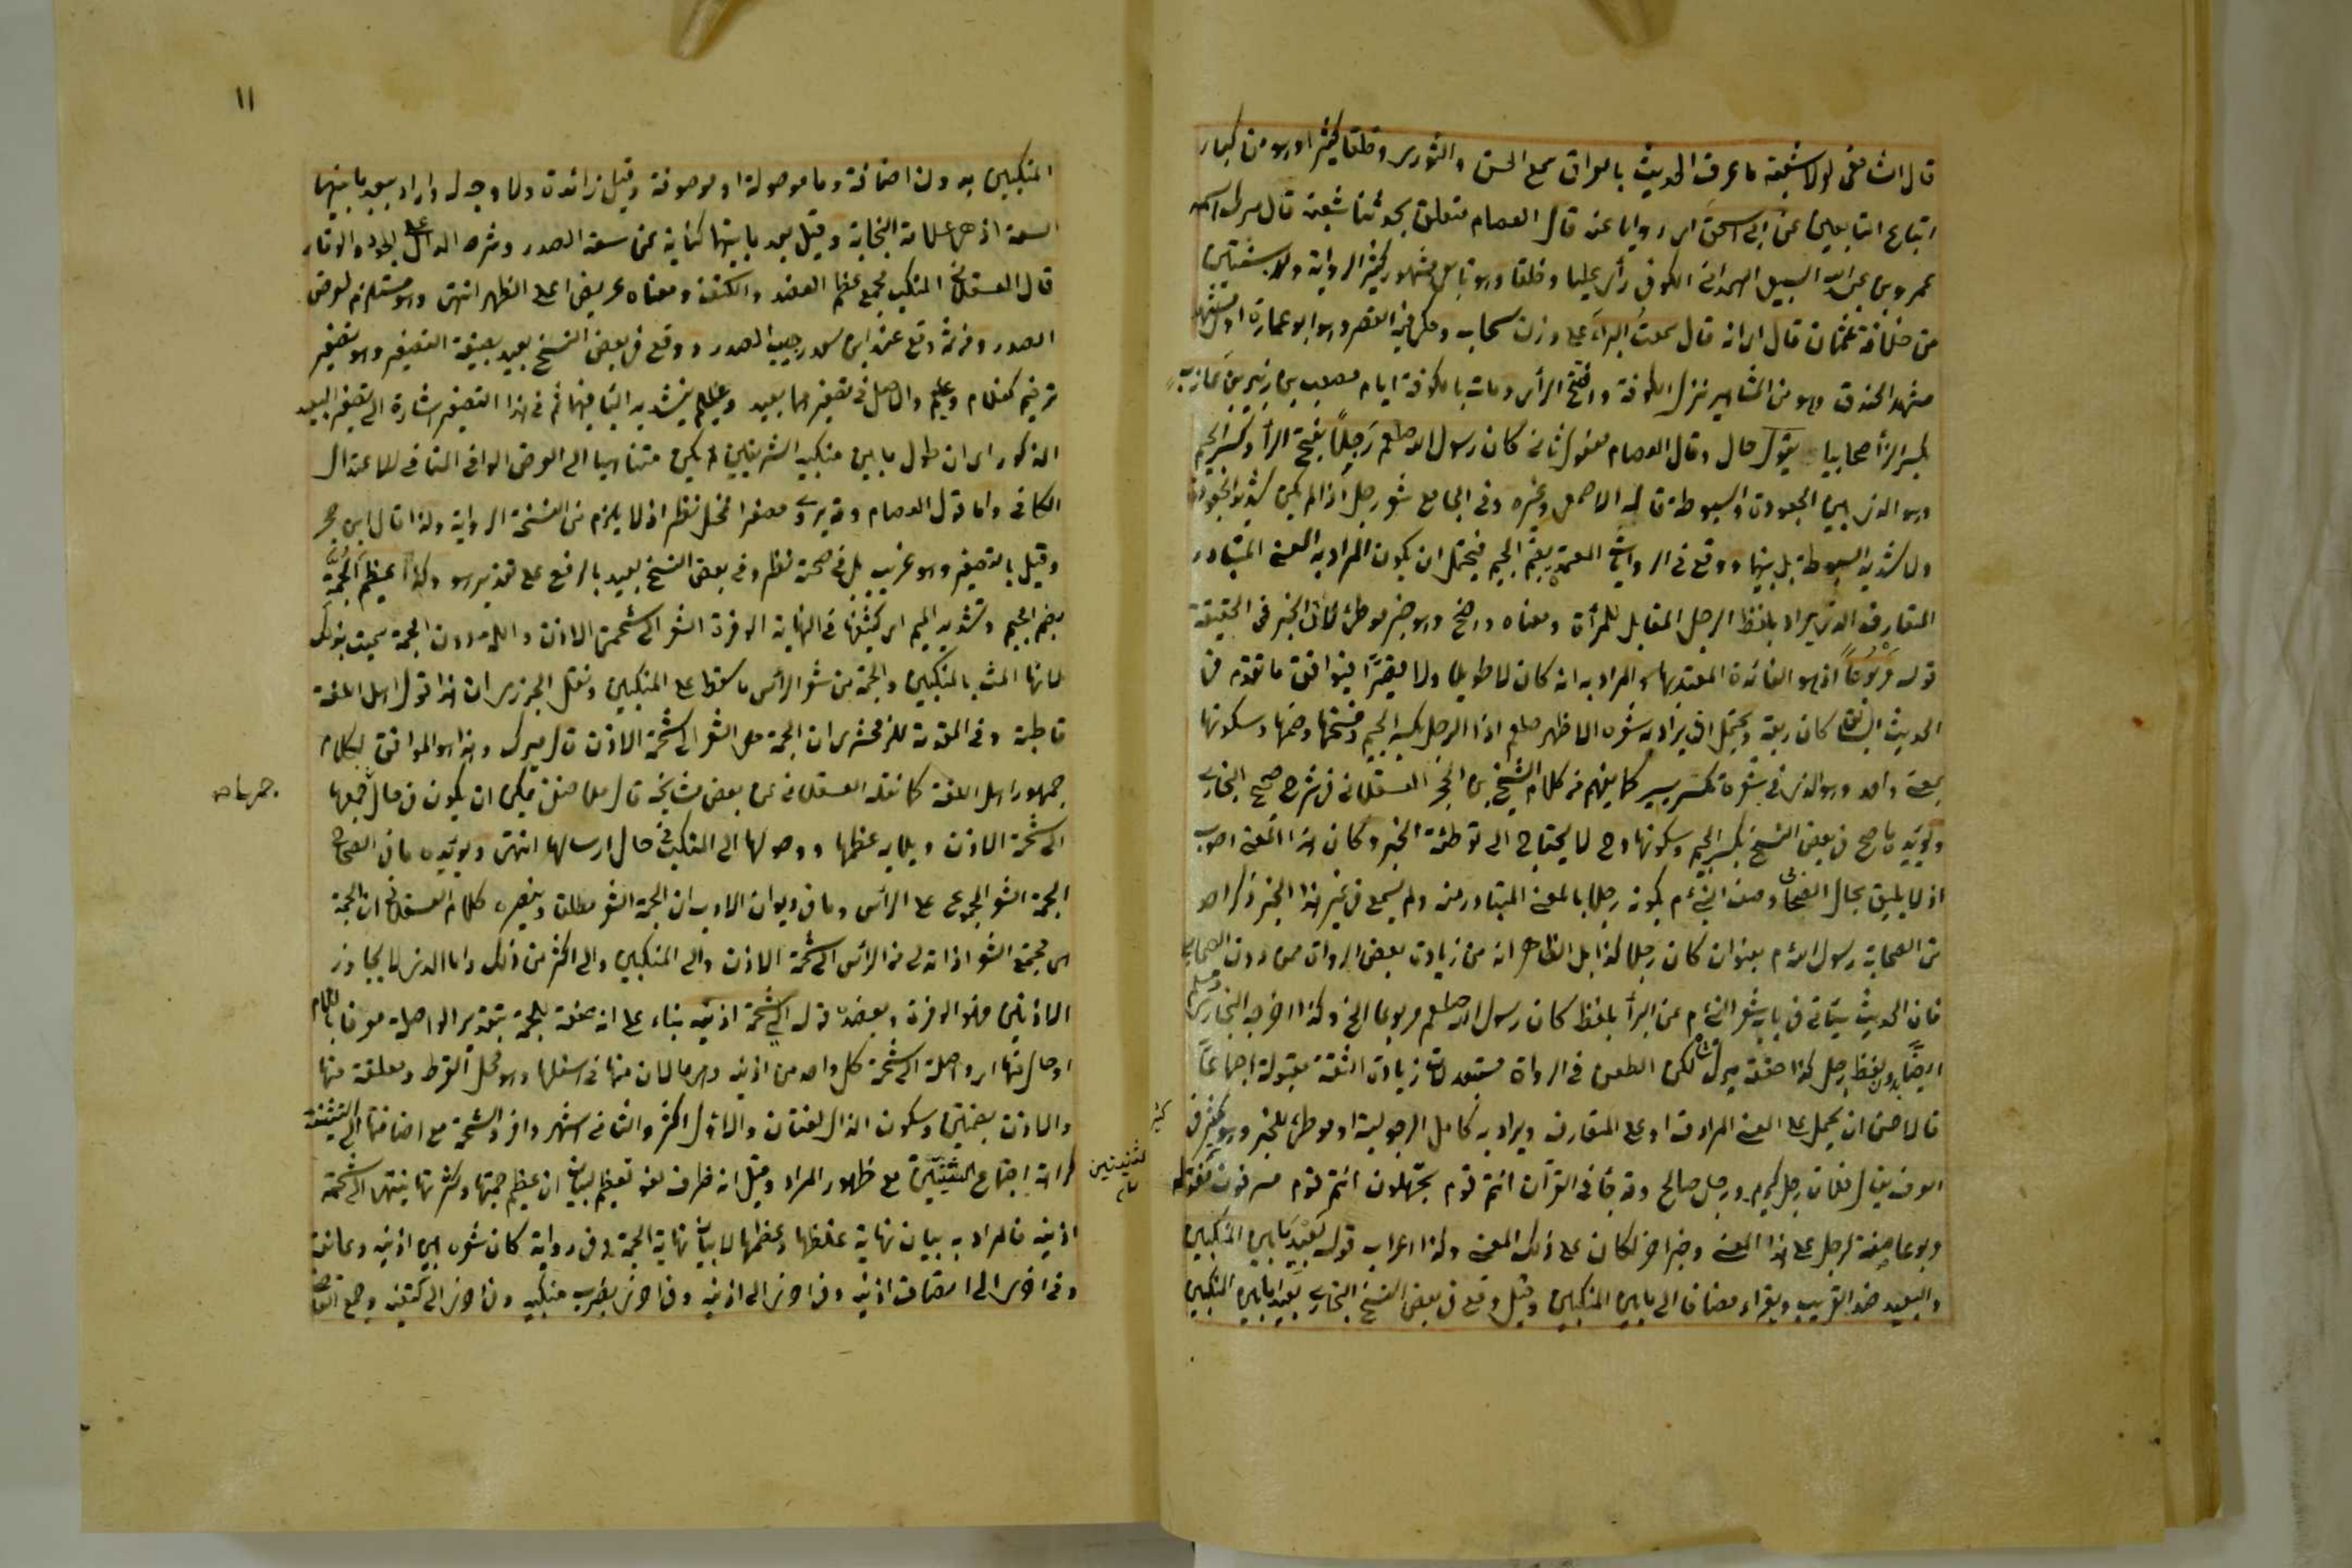 قال الشافعي لولا شعبة ما عرف الحديث بالعراق سمع الحسن والثوري وخلقا كثيرا وهو من كبار
اتباع التابعين عن ابي اسحق اي راويا عنه قال العصام متعلق بحدثنا شعبة قال ميرك اسمه
عمرو بن عبد الله السبيعي الهمداني الكوفي رأى عليا وخلقا وهو تابعي مشهور كثير الرواية ولد لسنتين
من خلافة عثمان قال اي انه قال سمعت البراء على وزن سحاب وحكي فيه القصر وهو ابو عمارة اول مشهد
مشهد الخندق وهو من المشاهير نزل الكوفة وافتتح الري ومات بالكوفة ايام مصعب بن زبير بن عازب
صحابيا يقول حال وقال العصام مفعول ثان كان رسول الله صلعم رجلا بفتح الراء وكسر الجيم
وهو الذي بين الجعودة والسبوطة قاله الاصمعي وغيره وفي الجامع شعر رجل اذا لم يكن شديد الجعودة
ولا شديد السبوطة بل بينهما ووقع في الروايات المعتمدة بضم الجيم فيحتمل ان يكون المراد به المعنى المتبادر
المتعارف الذي يراد بلفظ الرجل المقابل للمرأة ومعناه واضح وهو خبر موطئ لان الخبر في الحقيقة
قوله مربوعا اذ هو الفائدة المعتد بها والمراد به انه كان لا طويلا ولا قصيرا فيوافق ما تقدم من
الحديث السابق كان ربعة ويحتمل ان يراد به شعره الاظهر صلعم اذ الرجل بكسر الجيم وفتحها وضمها وسكونها
بمعنى واحد وهو الذي في شعره تكسر يسير كما يفهم من كلام الشيخ بن الحجر العسقلاني في شرح صحيح البخاري
ويؤيده ما صح في بعض النسخ بكسر الجيم وسكونها وح لا يحتاج الى توطئة الخبر وكان هذا المعنى اصوب
اذ لا يليق بحال الصحابي وصف النبي ءم بكونه رجلا بالمعنى المتبادر منه ولم يسمع في غير هذا الخبر ذكر احد
من الصحابة رسول الله ءم بعنوان كان رجلا كذا بل الظاهر انه من زيادة بعض الرواة ممن دون الصحابي
فان الحديث سيأتي في باب شعر النبي ءم عن البراء بلفظ كان رسول الله صلعم مربوعا الخ وكذا اخرجه البخاري ومسلم
ايضا بدون لفظ رجل كذا حققه ميرك شاه لكن الطعن في الرواة مستبعد لان زيادة الثقة مقبولة اجماعا
فالاحسن ان يحمل على المعنى المرادف او على المتعارف ويراد به كامل الرجولية او موطئ للخبر وهو كثير في
العرف يقال فلان رجل كريم ورجل صالح وقد جاء في القرآن انتم قوم تجهلون انتم قوم مسرفون فقوله
مربوعا صفة لرجل على هذا المعنى وخبر اخر لكان على ذلك المعنى وكذا اعراب قوله بعيد ما بين المنكبين
والبعيد ضد القريب ويقراء مضافا الى ما بين المنكبين وقيل وقع في بعض النسخ البخاري بعيدا ما بين المنكبين
كثير
١١
المنكبين بدون اضافة وما موصولة او موصوفة وقيل زائدة ولا وجه له واراد ببعيد ما بينهما
السعة اذ هي علامة النجابة وقيل بعد ما بينهما كناية عن سعة الصدر وشرحه الدال على الجود والوقار
قال العسقلاني المنكب مجمع عظم العضد والكتف ومعناه عريض اعلى الظهر انتهى وهو مستلزم لعرض
الصدر ومن ثمه وقع عند ابن سعد رحيب الصدر ووقع في بعض النسخ بعيد بصيغة التصغير وهو تصغير
ترخيم كغلام وغليم والاصل في تصغيرهما بعيد وغليم بتشديد الياء فيهما ثم في هذا التصغير اشارة الى تصغير البعد
المذكور اي ان طول ما بين منكبيه الشريفين لم يكن متناهيا الى العرض الوافي المنافي للاعتدال
الكافي واما قول العصام وقد يروى مصغرا فمحل نظر اذ لا يلزم من النسخة الرواية ولذا قال ابن حجر
وقيل بالتصغير وهو غريب بل في صحته نظر وفي بعض النسخ بعيد بالرفع على تقدير هو وكذا عظيم الجمة
بضم الجيم وتشديد الميم اي كثيفها في النهاية الوفرة الشعر الى شحمة الاذن واللمة دون الجمة سميت بذلك
لانها المت بالمنكبين والجمة من شعر الرأس ما سقط على المنكبين ونقل الجزري ان هذا قول اهل اللغة
قاطبة وفي المقدمة للزمخشري ان الجمة هي الشعر الى شحمة الاذن قال ميرك وهذا هو الموافق لكلام
جمهور اهل اللغة كما نقله العسقلاني عن بعض مشايخه قال ملا حنفي فيمكن ان يكون في حال جمعها
الى شحمة الاذن ويلايه عظمها ووصولها الى المنكب في حال ارسالها انتهى ويؤيده ما في الصحاح
الجمة الشعر المجموع على الرأس وما في ديوان الادب ان الجمة الشعر مطلقا وينصره كلام العسقلاني ان الجمة
هي مجتمع الشعر اذا تدلى من الرأس الى شحمة الاذن والى المنكبين والى اكثر من ذلك واما الذي لا يجاوز
الاذنين فهو الوفرة وبعضده قوله الى شحمة اذنيه بناء على انه صفة للجمة بتقدير الواصلة معرفا باللام
او حال منها اي واصلة الى شحمة كل واحد من اذنيه وهي ما لان منها في اسفلها وهو محل القرط ومعلقه منها
والاذن بضمتين وسكون الذال لغتان والاول اكثر والثاني اشهر وافرد الشحمة مع اضافتها الى التثنية
كراهة اجتماع التثنيتين مع ظهور المراد وقيل انه ظرف لغو لعظيم لبيان ان عظيم جمتها وكثرتها ينتهي الى شحمة
اذنيه فالمراد به بيان نهاية غلظها وعظمها لا بيان نهاية الجمة وفي رواية كان شعره بين اذنيه وعاتقه
وفي اخرى الى انصاف اذنيه وفي اخرى الى اذنيه وفي اخرى يضرب منكبيه وفي اخرى الى كتفيه وجمع القاضي